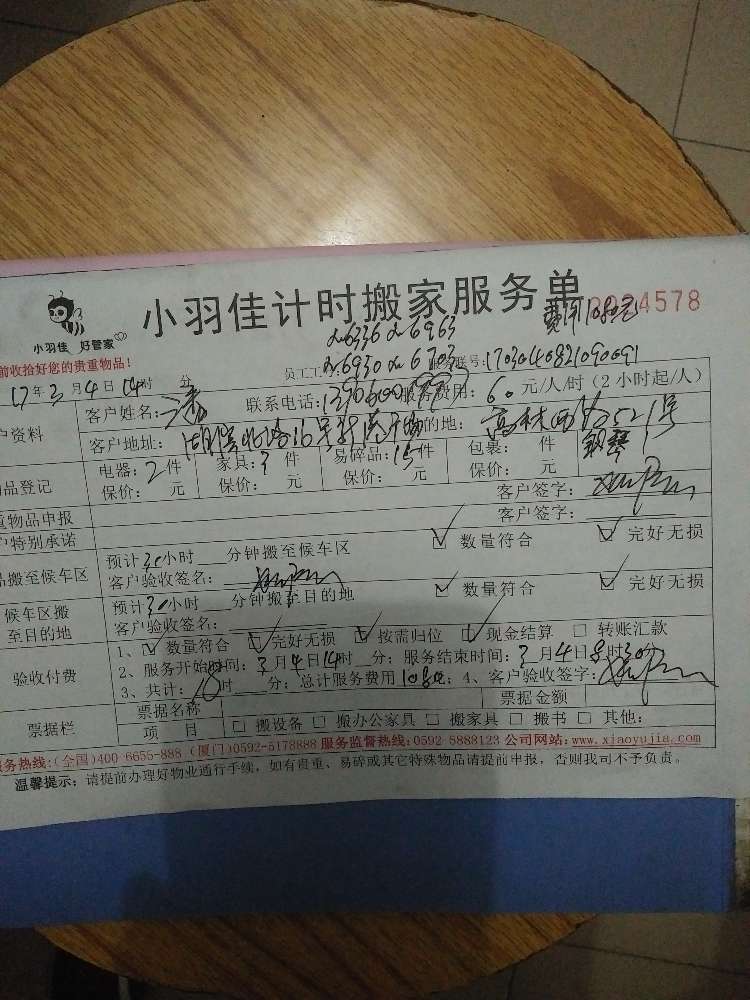 小羽佳计时搬家服务单
小羽佳 好管家
前收拾好您的贵重物品!
6336 6963
6930 6703
员工工 联号:1703040821090091
17年3月4日14时 分
户资料 客户姓名: 联系电话: 服务费用:60元/人/时(2小时起/人)
客户地址: 湖滨北路16号 的地: 高林 521号
品登记 电器:2件 家具:3件 易碎品:15件 包裹: 件 钢琴
保价: 元 保价: 元 保价: 元 保价: 元
重物品申报 客户签字:
户特别承诺 客户签字:
品搬至候车区 预计30小时 分钟搬至候车区 数量符合 完好无损
客户验收签名:
候车区搬至目的地 预计30小时 分钟搬至目的地 数量符合 完好无损
客户验收签名:
验收付费 1、 数量符合 完好无损 按需归位 现金结算 转账汇款
2、服务开始时间:3月4日14时 分;服务结束时间:3月4日 时30分
3、共计:18时 分;总计服务费用1080;4、客户验收签字:
票据栏 票据名称 票据金额
项 目 搬设备 搬办公家具 搬家具 搬书 其他:
服务热线:(全国)400-6655-888 (厦门)0592-5178888 服务监督热线:0592-5888123 公司网站:www.xiaoyujia.com
温馨提示:请提前办理好物业通行手续,如有贵重、易碎或其它特殊物品请提前申报,否则我司不予负责。